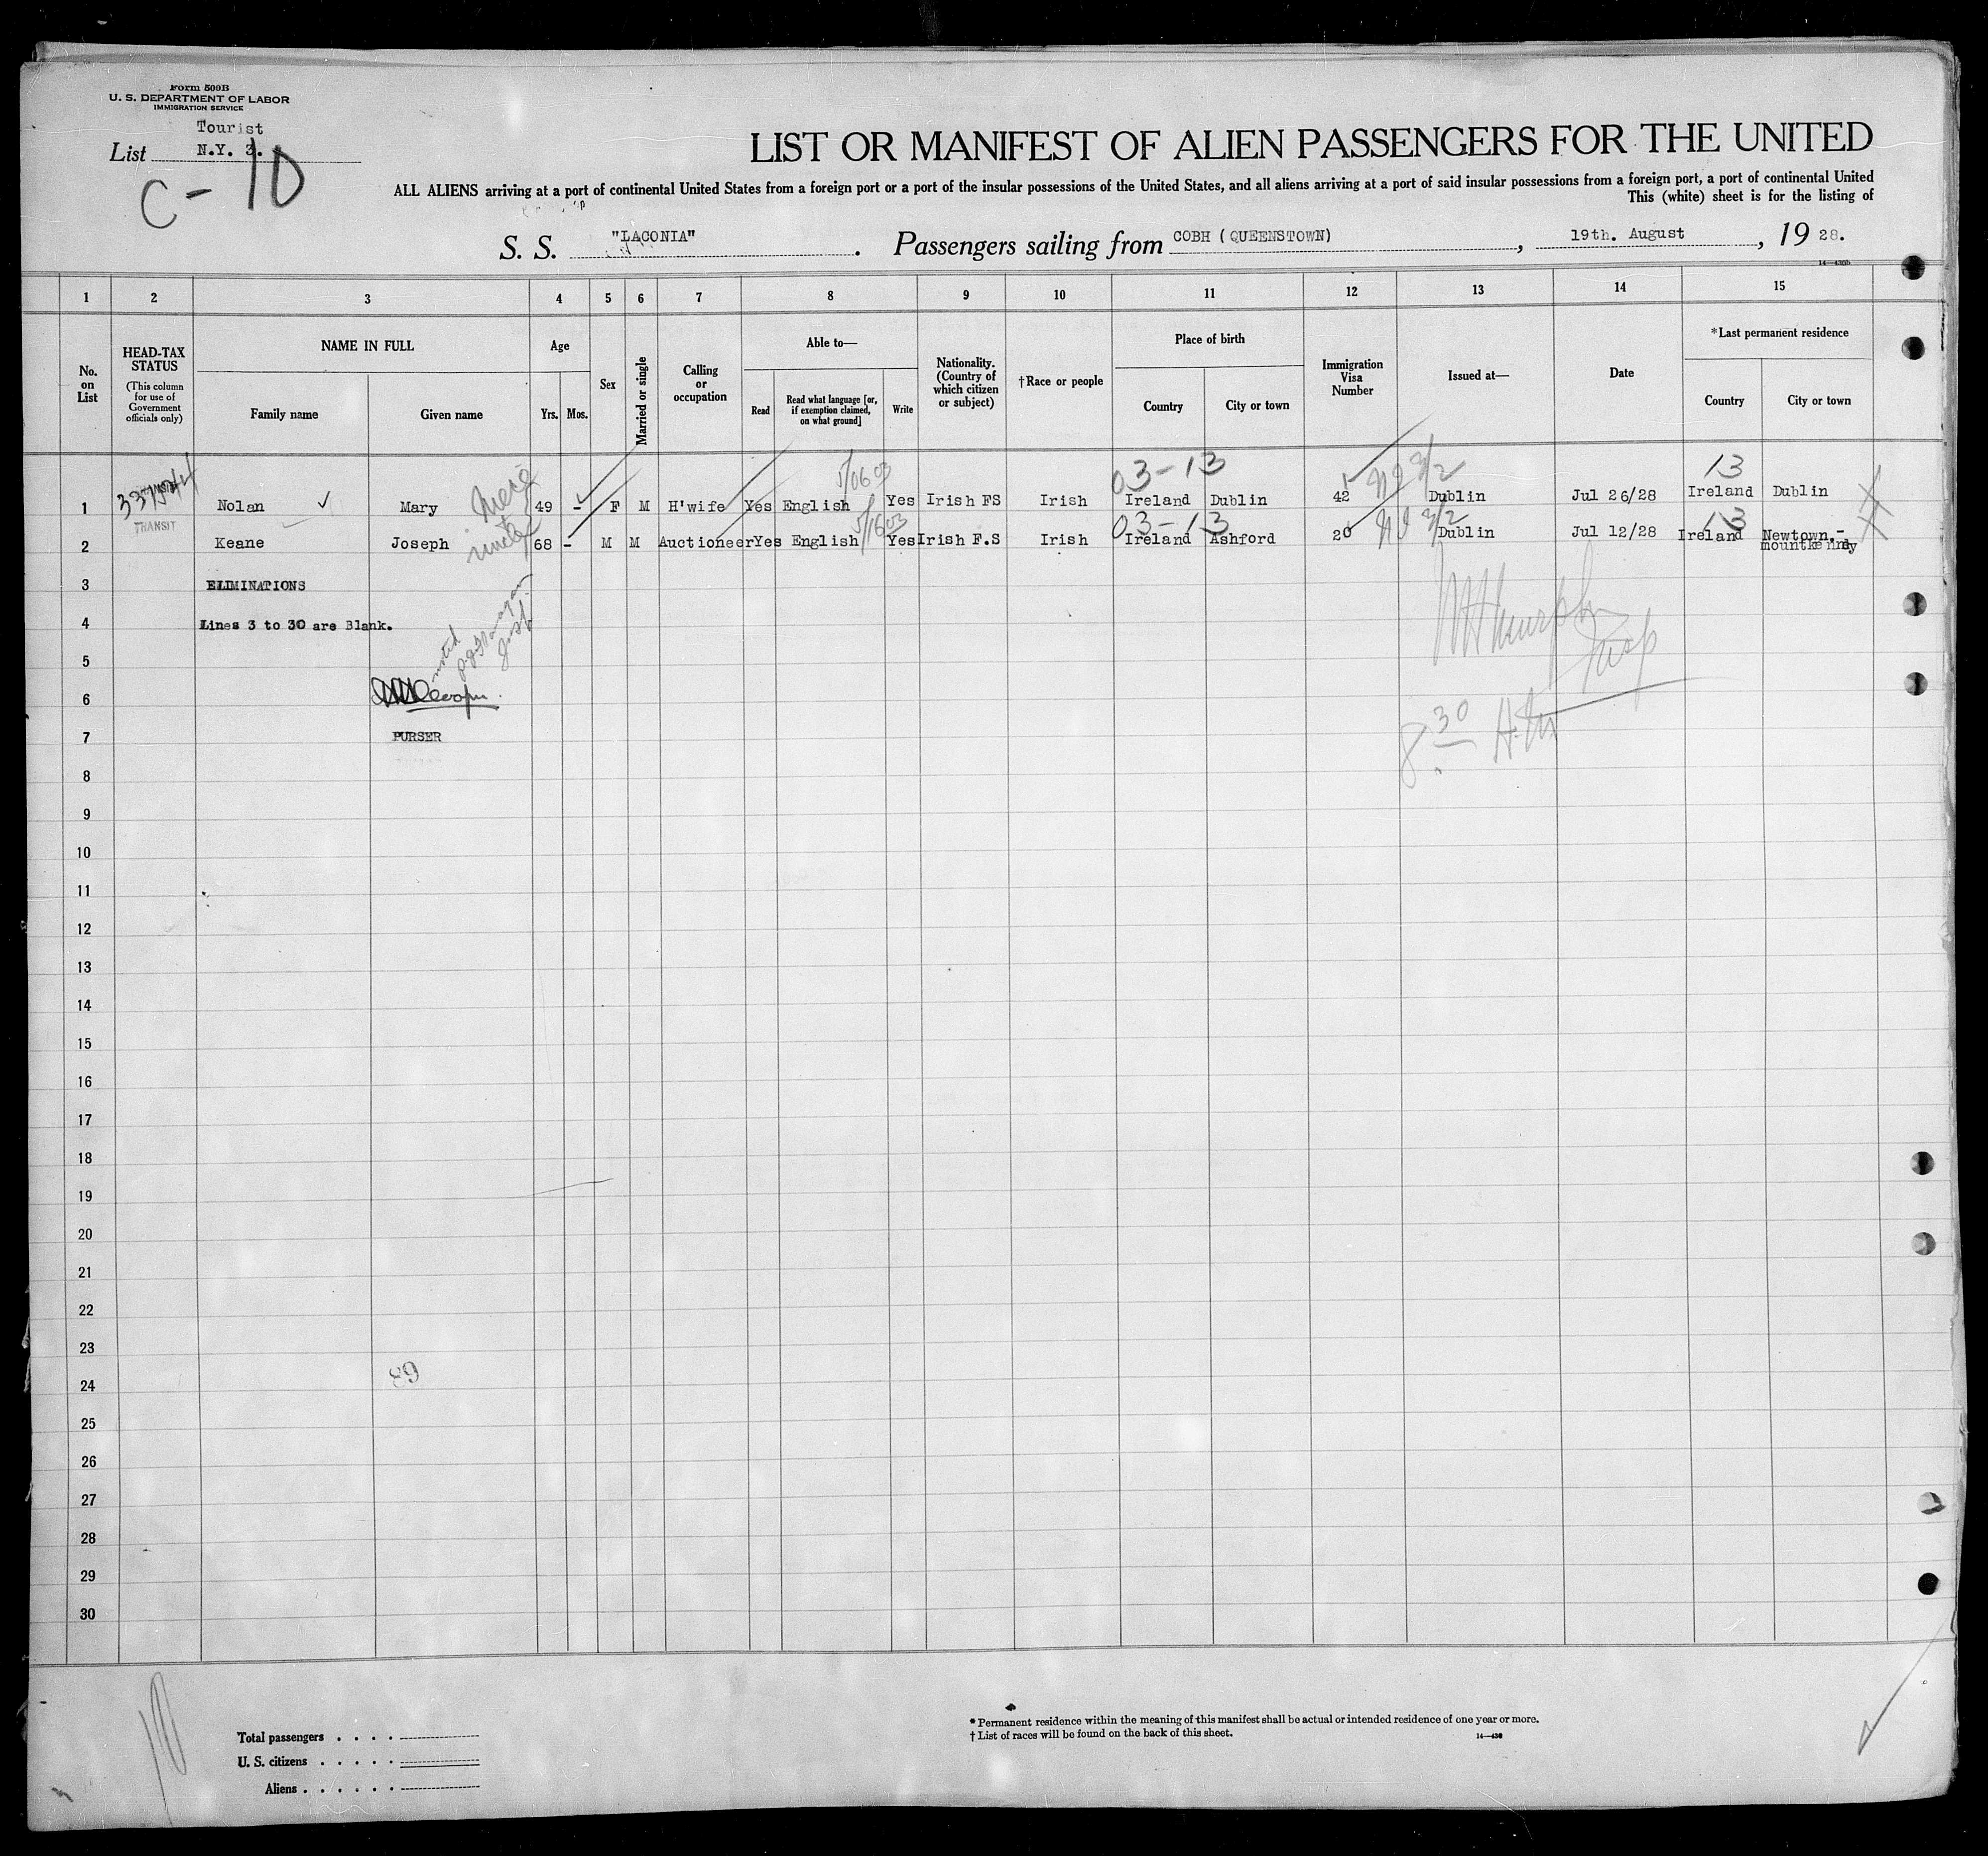 Form 500B
U. S. DEPARTMENT OF LABOR
IMMIGRATION SERVICE
Tourist
List N.Y. 3.
C - 10
LIST OR MANIFEST OF ALIEN PASSENGERS FOR THE UNITED
ALL ALIENS arriving at a port of continental United States from a foreign port or a port of the insular possessions of the United States, and all aliens arriving at a port of said insular possessions from a foreign port, a port of continental United
This (white) sheet is for the listing of
S. S. "LACONIA". Passengers sailing from COBH (QUEENSTOWN), 19th. August, 1928.
1 2 3 4 5 6 7 8 9 10 11 12 13 14 15
No. on List
HEAD-TAX STATUS
(This column for use of Government officials only)
NAME IN FULL
Family name Given name
Age
Yrs. Mos.
Sex
Married or single
Calling or occupation
Able to—
Read
Read what language [or, if exemption claimed, on what ground]
Write
Nationality. (Country of which citizen or subject)
†Race or people
Place of birth
Country City or town
Immigration Visa Number
Issued at—
Date
*Last permanent residence
Country City or town
03-13 13
1 Nolan Mary 49 - F M H'wife Yes English Yes Irish FS Irish Ireland Dublin 42 Dublin Jul 26/28 Ireland Dublin
TRANSIT
03-13 13
2 Keane Joseph 68 - M M Auctioneer Yes English Yes Irish F.S Irish Ireland Ashford 20 Dublin Jul 12/28 Ireland Newtown.-
mountkennedy
3 ELIMINATIONS
4 Lines 3 to 30 are Blank.
5
6
7 PURSER
8 30
8
9
10
11
12
13
14
15
16
17
18
19
20
21
22
23
24
25
26
27
28
29
30
Total passengers
U. S. citizens
Aliens
* Permanent residence within the meaning of this manifest shall be actual or intended residence of one year or more.
† List of races will be found on the back of this sheet.